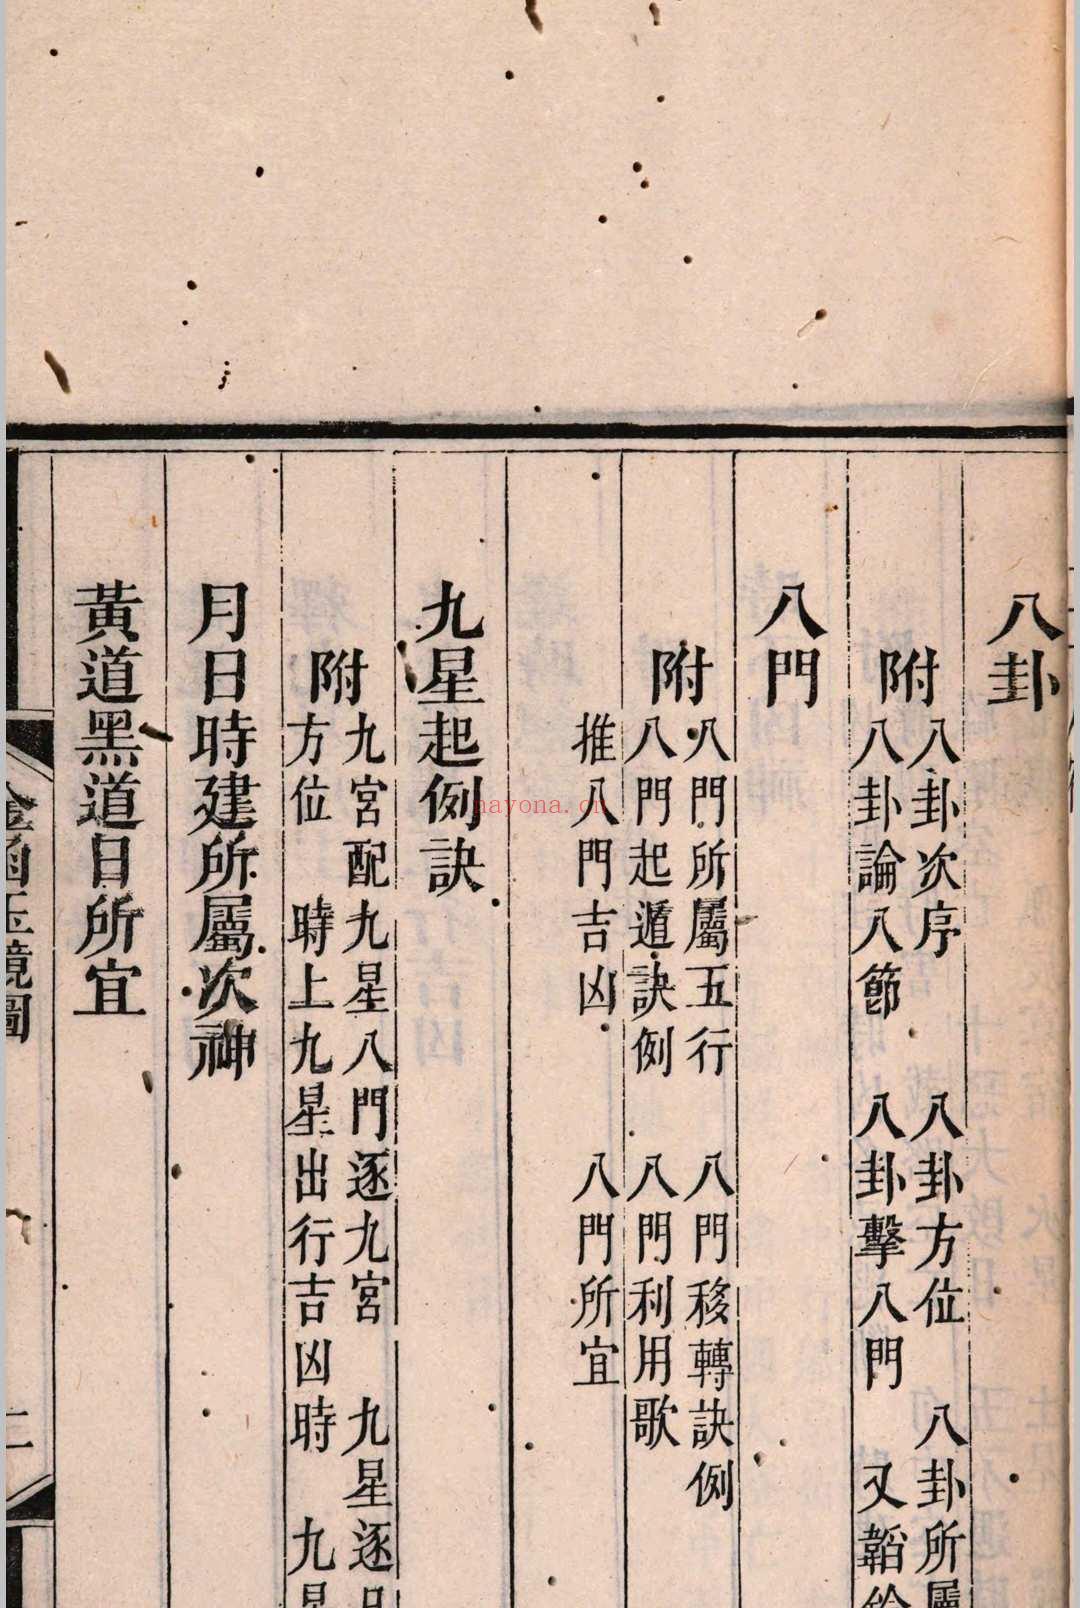 八卦
附
八卦次序 八卦方位 八卦所屬
八卦論八節 八卦擊八門 又韜鈐
八門
附
八門所屬五行 八門移轉訣例
八門起遁訣例 八門利用歌
推八門吉凶 八門所宜
九星起例訣
附
九宮配九星八門逐九宮 九星逐日
方位 時上九星出行吉凶時 九星
月日時建所屬次神
黃道黑道日所宜
金函玉鏡圖
二
nayona.cn